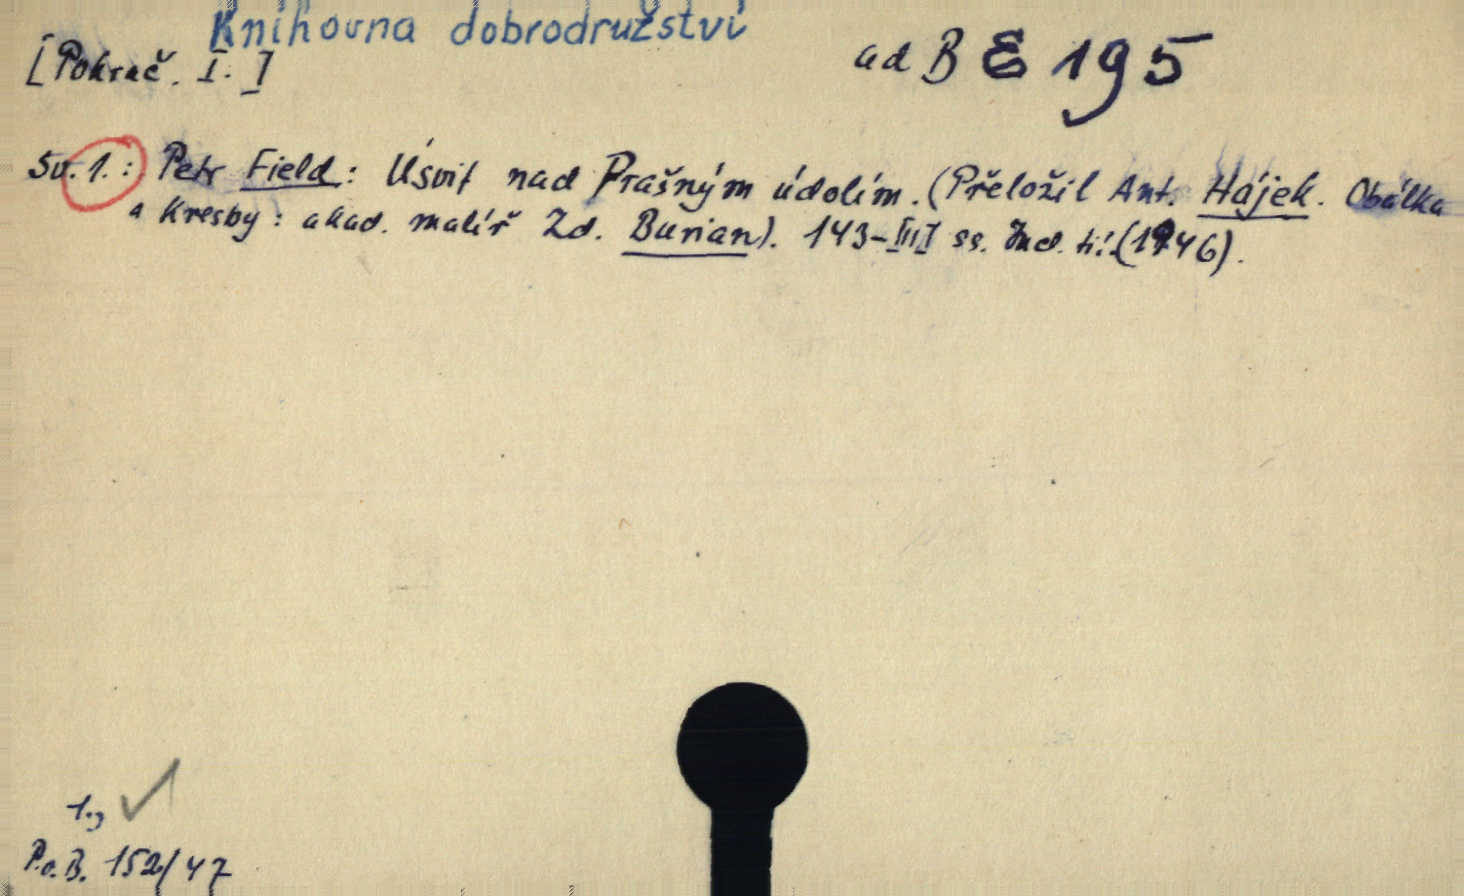 Knihovna dobrodružství
[Pokrač. I.]
ad B E 195
Sv. 1.: Petr Field: Úsvit nad Prašným údolím. (Přeložil Ant. Hájek. Obálka
a kresby: akad. malíř Zd. Burian). 143-[III] ss. tir. (1946).
1.,
P.o.B. 152/47